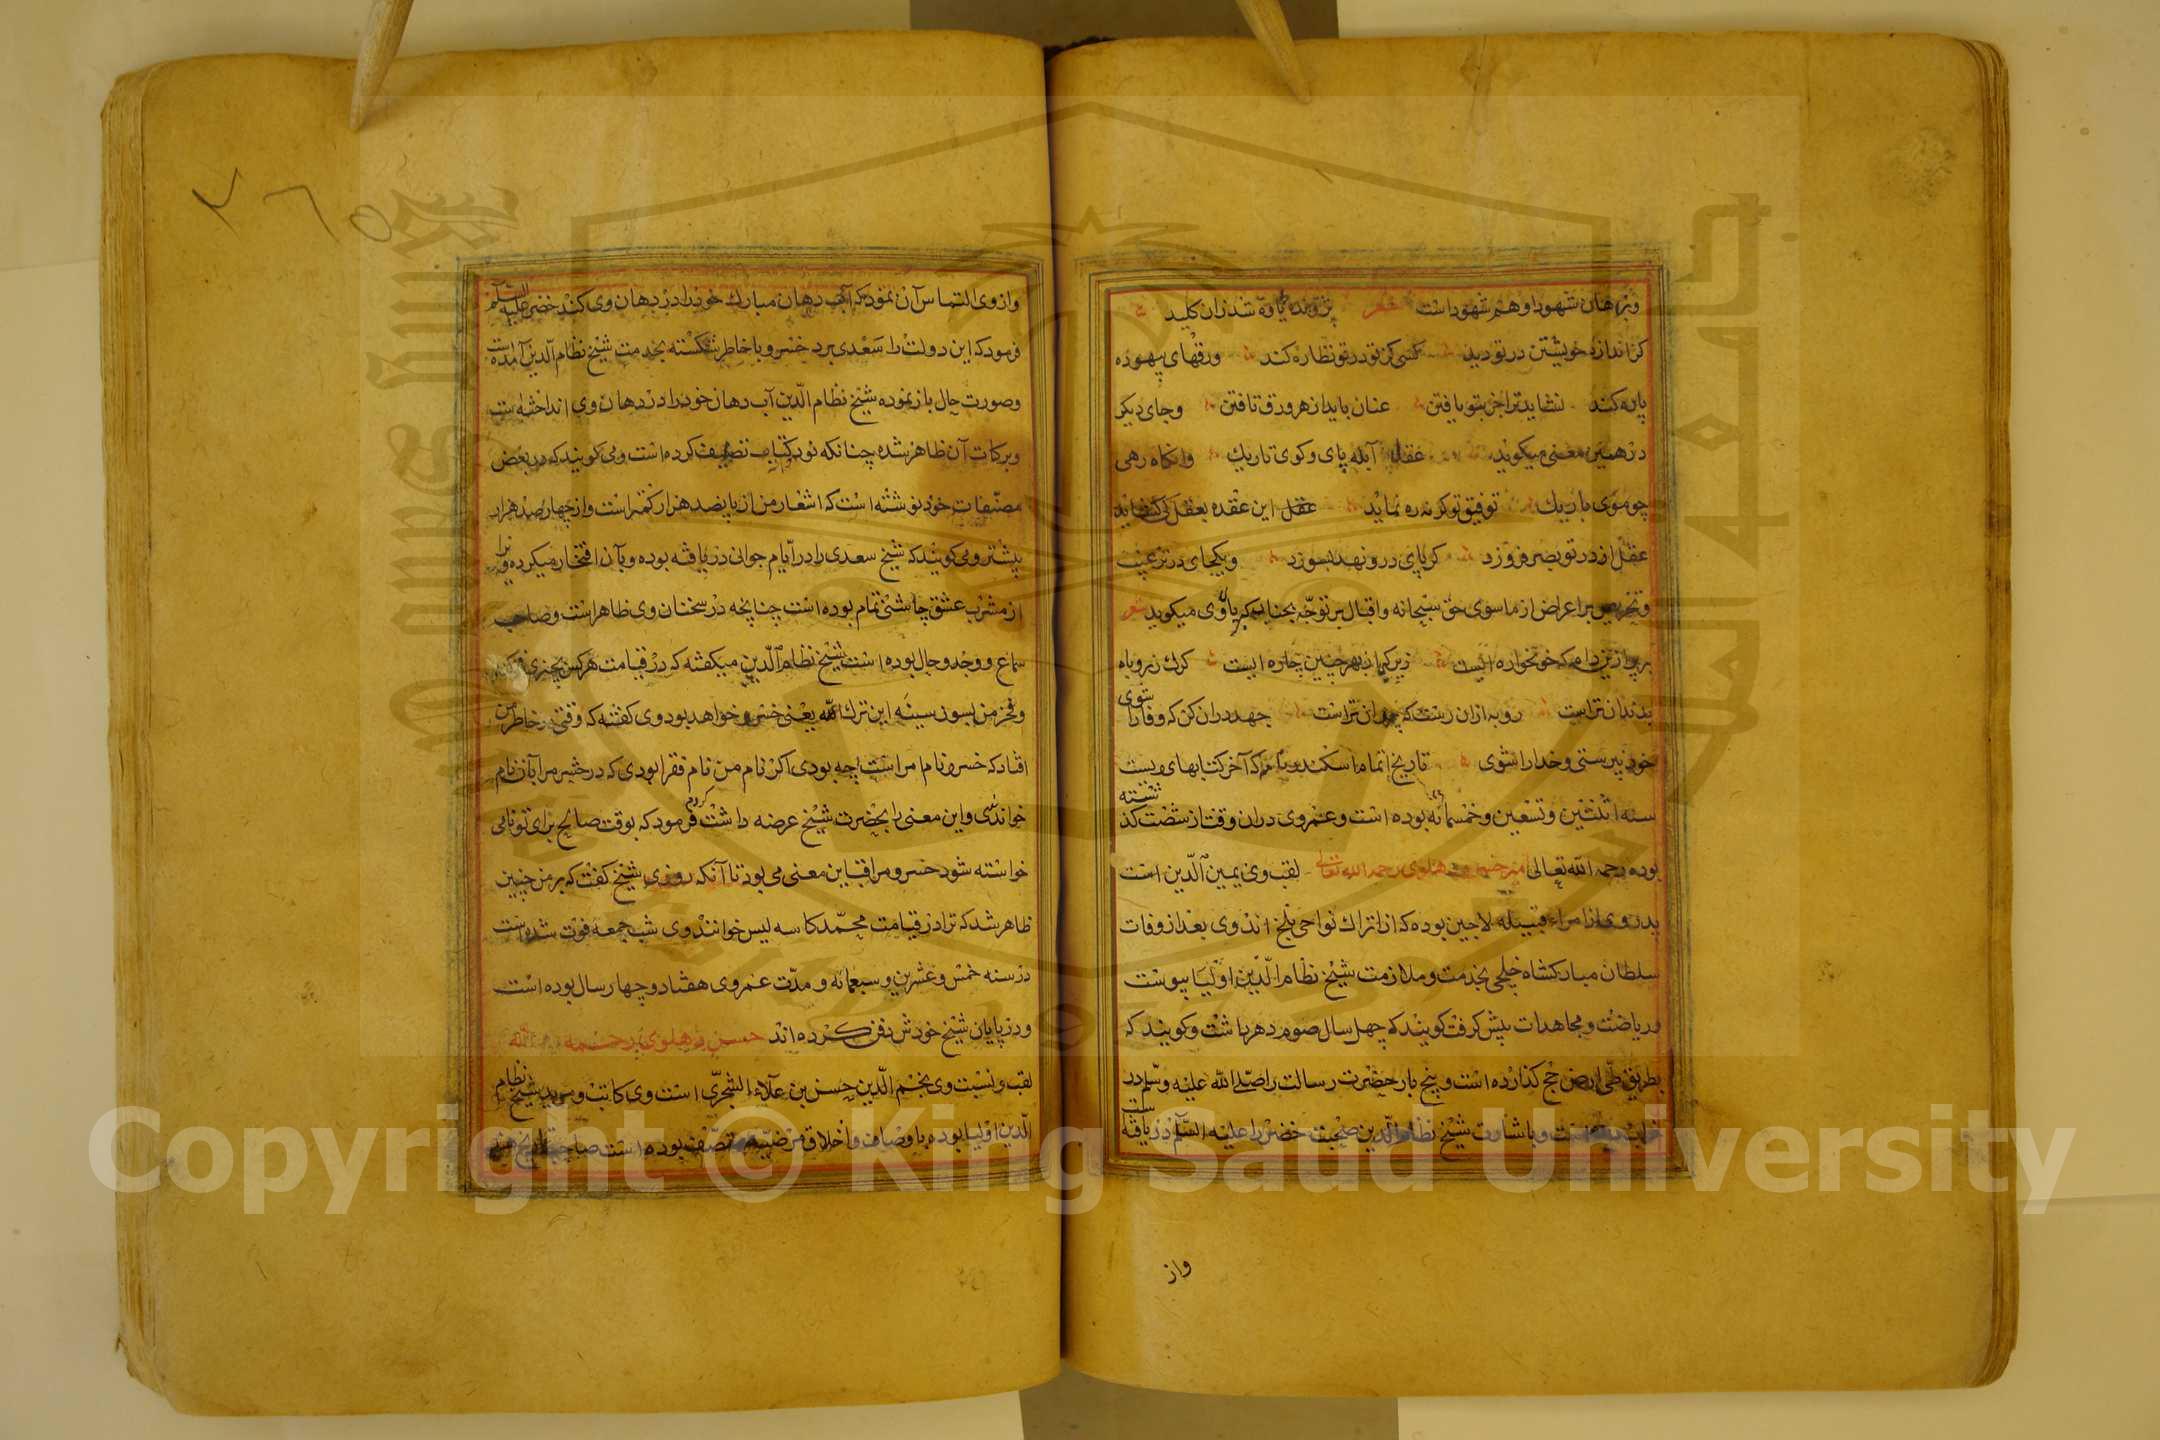 وبرهان شهود او هم شهود است شعر پژوهنده یاوه شد زان کلید
کز اندازه خویشتن در تو دید کسی کز تو در تو نظاره کند ورقهای بیهوده
پاره کند نشاید ترا جز بتو یافتن عنان باید از هر ورق تافتن و جای دیگر
در همین معنی میگوید عقل آبله پای و کوی تاریک وانگاه رهی
چو موی باریک توفیق تو گر نه ره نماید عقل این عقده بعقل کی گشاید
عقل از در تو بصر فروزد گر پای درو نهد بسوزد و یکجای در ترغیب
و تحریص بر اعراض از ماسوی حق سبحانه و اقبال بر توجه بجناب کبریاء وی میگوید شعر
بر پر ازین دام که خونخواره ایست زیرکی از بهر چنین چاره ایست گرگ ز روباه
بدندان تراست روبه ازان رست که پردان تراست جهد دران کن که وفا را شوی
خود نپرستی و خدا را شوی تاریخ اتمام اسکندرنامه که آخر کتابهای ویست
سنه اثنتین و تسعین و خمسمائه بوده است و عمر وی دران وقت از شصت گذشته
بوده رحمه الله تعالی امیر خسرو دهلوی رحمه الله تعالی لقب وی یمین الدین است
پدر وی از امراء قبیله لاجین بوده که از اتراک نواحی بلخ اند وی بعد از وفات
سلطان مبارکشاه خلجی بخدمت و ملازمت شیخ نظام الدین اولیا پیوست
و ریاضت و مجاهدات پیش گرفت گویند که چهل سال صوم دهر داشت و گویند که
بطریق طی ارض حج گذارده است و پنج بار حضرت رسالت را صلی الله علیه وسلم در
خواب دیده است و باشارت شیخ نظام الدین صحبت خضر را علیه السلام دریافته است
واز
٢٦٥
و از وی التماس آن نموده که آب دهان مبارک خود را در دهان وی کند خضر علیه السلام
فرمود که این دولت را سعدی برد خسرو با خاطر شکسته بخدمت شیخ نظام الدین آمده است
وصورت حال باز نموده شیخ نظام الدین آب دهان خود را در دهان وی انداخته است
و برکات آن ظاهر شده چنانکه نود کتاب تصنیف کرده است و می گویند که در بعض
مصنفات خود نوشته است که اشعار من از پانصد هزار کمتر است و از چهار صد هزار
بیشتر و می گویند که شیخ سعدی را در ایام جوانی دریافته بوده و بآن افتخار میکرده و ویرا
از مشرب عشق چاشنی تمام بوده است چنانچه در سخنان وی ظاهر است و صاحب
سماع و وجد و حال بوده است شیخ نظام الدین میگفته که در قیامت هرکس بچیزی فخر کند
و فخر من بسوز سینه این ترک الله یعنی خسرو خواهد بود وی گفته که وقتی در خاطر من
افتاد که خسرو نام امراست چه بودی اگر نام من نام فقرا بودی که در حشر مرا بآن نام
خواندندی و این معنی را بحضرت شیخ عرضه داشت کردم فرمود که بوقت صالح برای تو نامی
خواسته شود خسرو مراقب این معنی می بود تا آنکه روزی شیخ گفت که بر من چنین
ظاهر شد که ترا در قیامت محمد کاسه لیس خوانند وی شب جمعه فوت شده است
در سنه خمس و عشرین و سبعمائه و مدت عمر وی هفتاد و چهار سال بوده است
و در پایان شیخ خودش دفن کرده اند حسن دهلوی رحمه الله
لقب و نسبت وی نجم الدین حسن بن علاء السجزی است وی کاتب و مرید شیخ نظام
الدین اولیا بوده باوصاف و اخلاق مرضیه متصف بوده است صاحب تاریخ هند